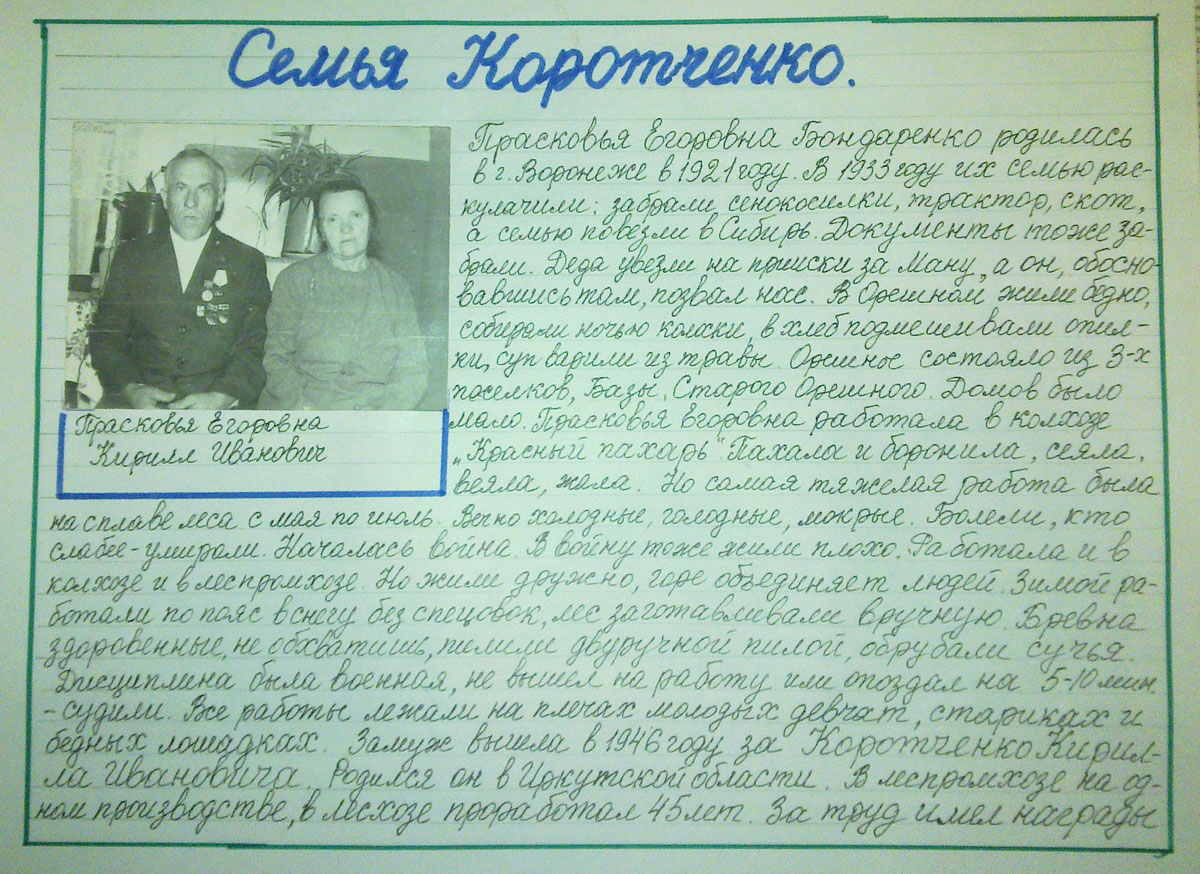 Семья Коротченко.
Прасковья Егоровна Бондаренко родилась
в г. Воронеже в 1921 году. В 1933 году их семью рас-
кулачили: забрали сенокосилки, трактор, скот,
а семью повезли в Сибирь. Документы тоже за-
брали. Деда увезли на прииски за Ману, а он, обосно-
вавшись там, позвал нас. В Орешном жили бедно,
собирали ночью колоски, в хлеб подмешивали опил-
ки, суп варили из травы. Орешное состояло из 3-х
поселков, Базы, Старого Орешного. Домов было
мало. Прасковья Егоровна работала в колхозе
„Красный пахарь". Пахала и боронила, сеяла,
веяла, жала. Но самая тяжелая работа была
Прасковья Егоровна
Кирилл Иванович
на сплаве леса с мая по июль. Вечно холодные, голодные, мокрые. Болели, кто
слабее - умирали. Началась война. В войну тоже жили плохо. Работала и в
колхозе и в леспромхозе. Но жили дружно, горе объединяет людей. Зимой ра-
ботали по пояс в снегу без спецовок, лес заготавливали вручную. Бревна
здоровенные, не обхватишь, пилили двуручной пилой, обрубали сучья.
Дисциплина была военная, не вышел на работу или опоздал на 5-10 мин
- судили. Все работы лежали на плечах молодых девчат, стариках и
бедных лошадках. Замуж вышла в 1946 году за Коротченко Кирил-
ла Ивановича. Родился он в Иркутской области. В леспромхозе на од-
ном производстве, в лесхозе проработал 45 лет. За труд имел награды